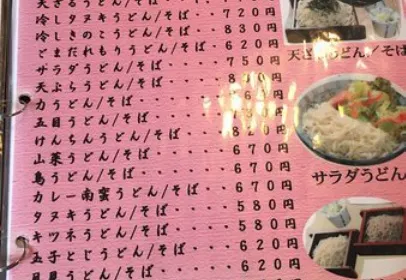 天ざるうどん/そば
冷しタヌキうどん/そば・・・720円
冷しきのこうどん/そば・・・830円
ごまだれもりうどん/そば・・620円
サラダうどん/そば・・・・・750円
天ぷらうどん/そば・・・・・
力うどん/そば・・・・・・
五目うどん/そば・・・・・
けんちんうどん/そば・・・
山菜うどん/そば・・・・・・670円
鳥うどん/そば・・・・・・・670円
カレー南蛮うどん/そば・・・670円
タヌキうどん/そば・・・・・580円
キツネうどん/そば・・・・・580円
玉子とじうどん/そば・・・・620円
月見うどん/そば・・・・・・620円
天ざるうどん/そば
サラダうどん